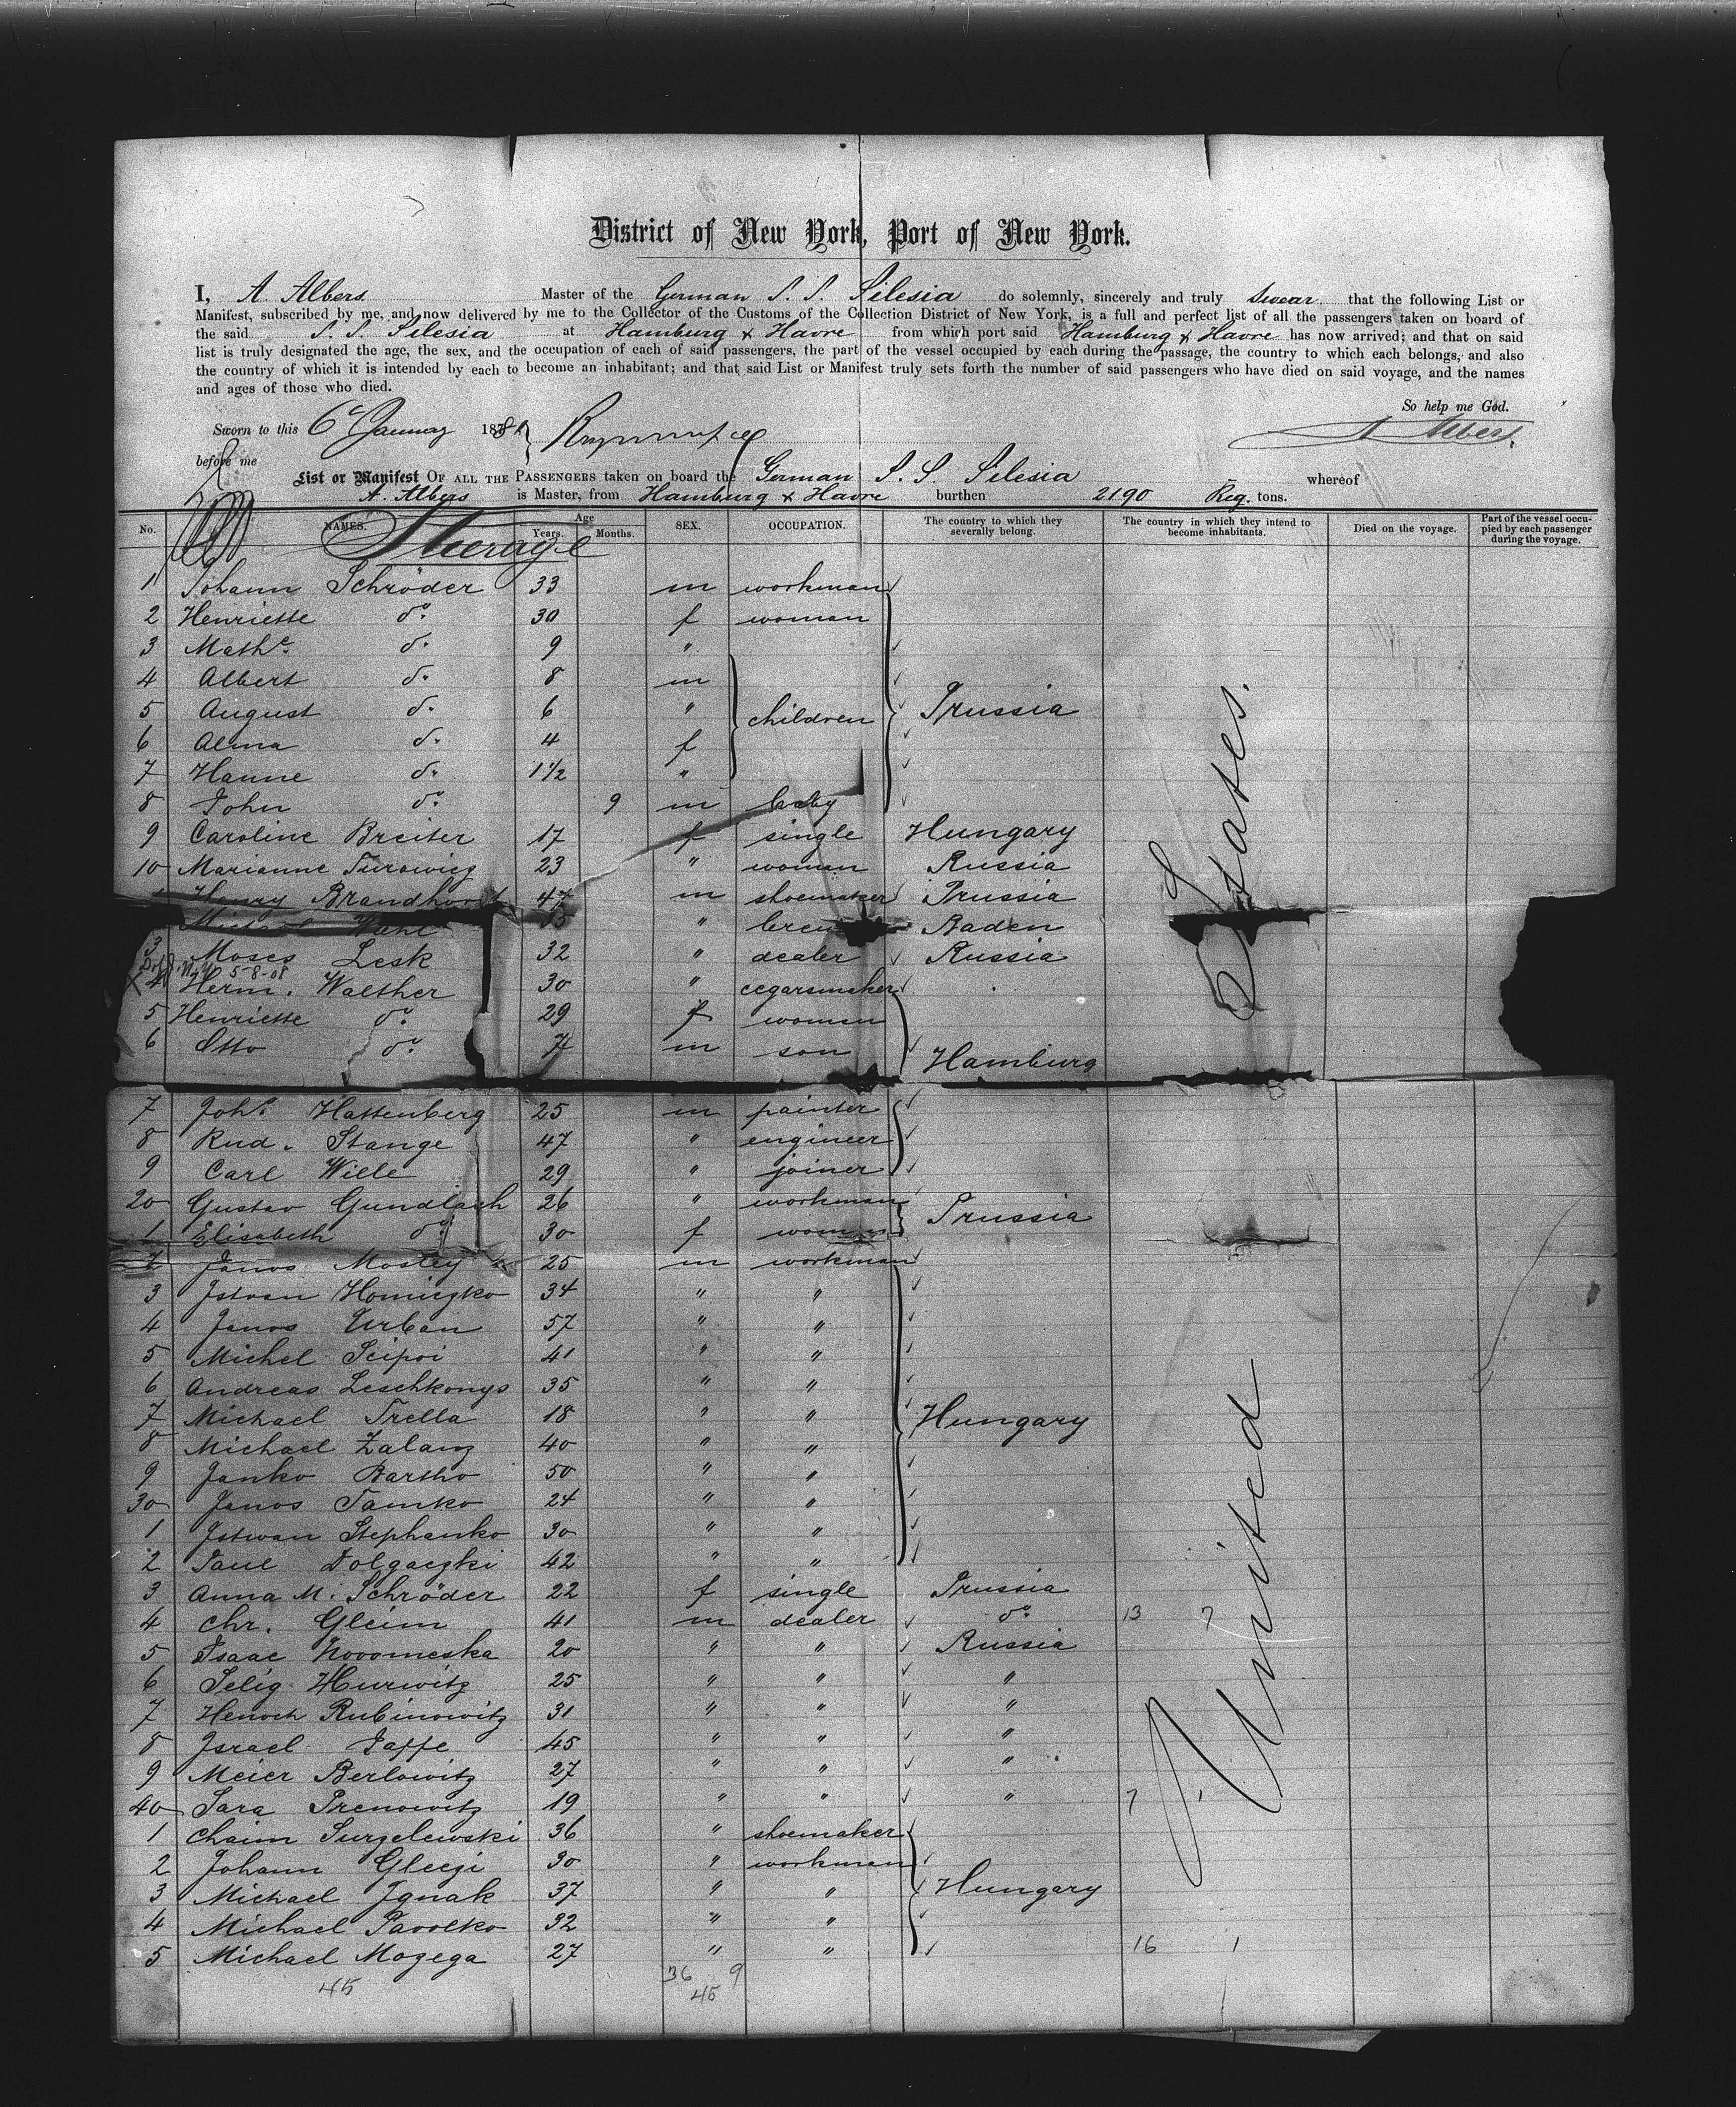 District of New York, Port of New York.
I, A. Albers Master of the German S. S. Silesia do solemnly, sincerely and truly swear that the following List or
Manifest, subscribed by me, and now delivered by me to the Collector of the Customs of the Collection District of New York, is a full and perfect list of all the passengers taken on board of
the said S. S. Silesia at Hamburg & Havre from which port said Hamburg & Havre has now arrived; and that on said
list is truly designated the age, the sex, and the occupation of each of said passengers, the part of the vessel occupied by each during the passage, the country to which each belongs, and also
the country of which it is intended by each to become an inhabitant; and that said List or Manifest truly sets forth the number of said passengers who have died on said voyage, and the names
and ages of those who died.
So help me God.
Sworn to this 6 January 188 A Albers
before me
List or Manifest OF ALL THE PASSENGERS taken on board the German S. S. Silesia whereof
A. Albers is Master, from Hamburg & Havre burthen 2190 Reg. tons.
No. NAMES. Age Years. Months. SEX. OCCUPATION. The country to which they severally belong. The country in which they intend to become inhabitants. Died on the voyage. Part of the vessel occupied by each passenger during the voyage.
Steerage
1 Johann Schröder 33 m workman
2 Henriette do. 30 f woman
3 Mathe. do. 9 "
4 Albert do. 8 m
5 August do. 6 " children Prussia
6 Alma do. 4 f
7 Hanne do. 1 1/2 "
8 John do. 9 m baby
9 Caroline Breiter 17 f single Hungary
10 Marianne Turowicz 23 " woman Russia
1 Henry Brandhoost 47 m shoemaker Prussia
Michael Wahl " Baden
3 Moses Lesk 32 " dealer Russia
5-8-08
4 Herm. Walther 30 " cegarsmaker
5 Henriette do. 29 f woman
6 Otto do. 7 m son Hamburg
7 Johs. Hattenberg 25 m painter
8 Rud. Stange 47 " engineer
9 Carl Wille 29 " joiner
20 Gustav Gundlach 26 " workman Prussia
1 Elisabeth do. 30 f woman
2 Janos Mostey 25 m workman
3 Istvan Homiczko 34 " "
4 Janos Urban 57 " "
5 Michel Scipoi 41 " "
6 Andreas Leschkonys 35 " "
7 Michael Trella 18 " " Hungary
8 Michael Zalanz 40 " "
9 Janko Bartho 50 " "
30 Janos Tamko 24 " "
1 Istwan Stephanko 30 " "
2 Paul Dolgaczki 42 " "
3 Anna M. Schröder 22 f single Prussia
4 Chr. Gleim 41 m dealer do. 13 7
5 Isaac Novomeska 20 " " Russia
6 Selig Hurwitz 25 " " "
7 Henoch Rubinowitz 31 " " "
8 Israel Jaffe 45 " " "
9 Meier Berlowitz 27 " " "
40 Sara Prenowitz 19 " " " 7 1
1 Chaim Surzelewski 36 " shoemaker
2 Johann Gleczi 30 " workman
3 Michael Ignak 37 " " Hungary
4 Michael Pavolko 32 " "
5 Michael Mozega 27 " " 16 1
45 36 9
45
United States.